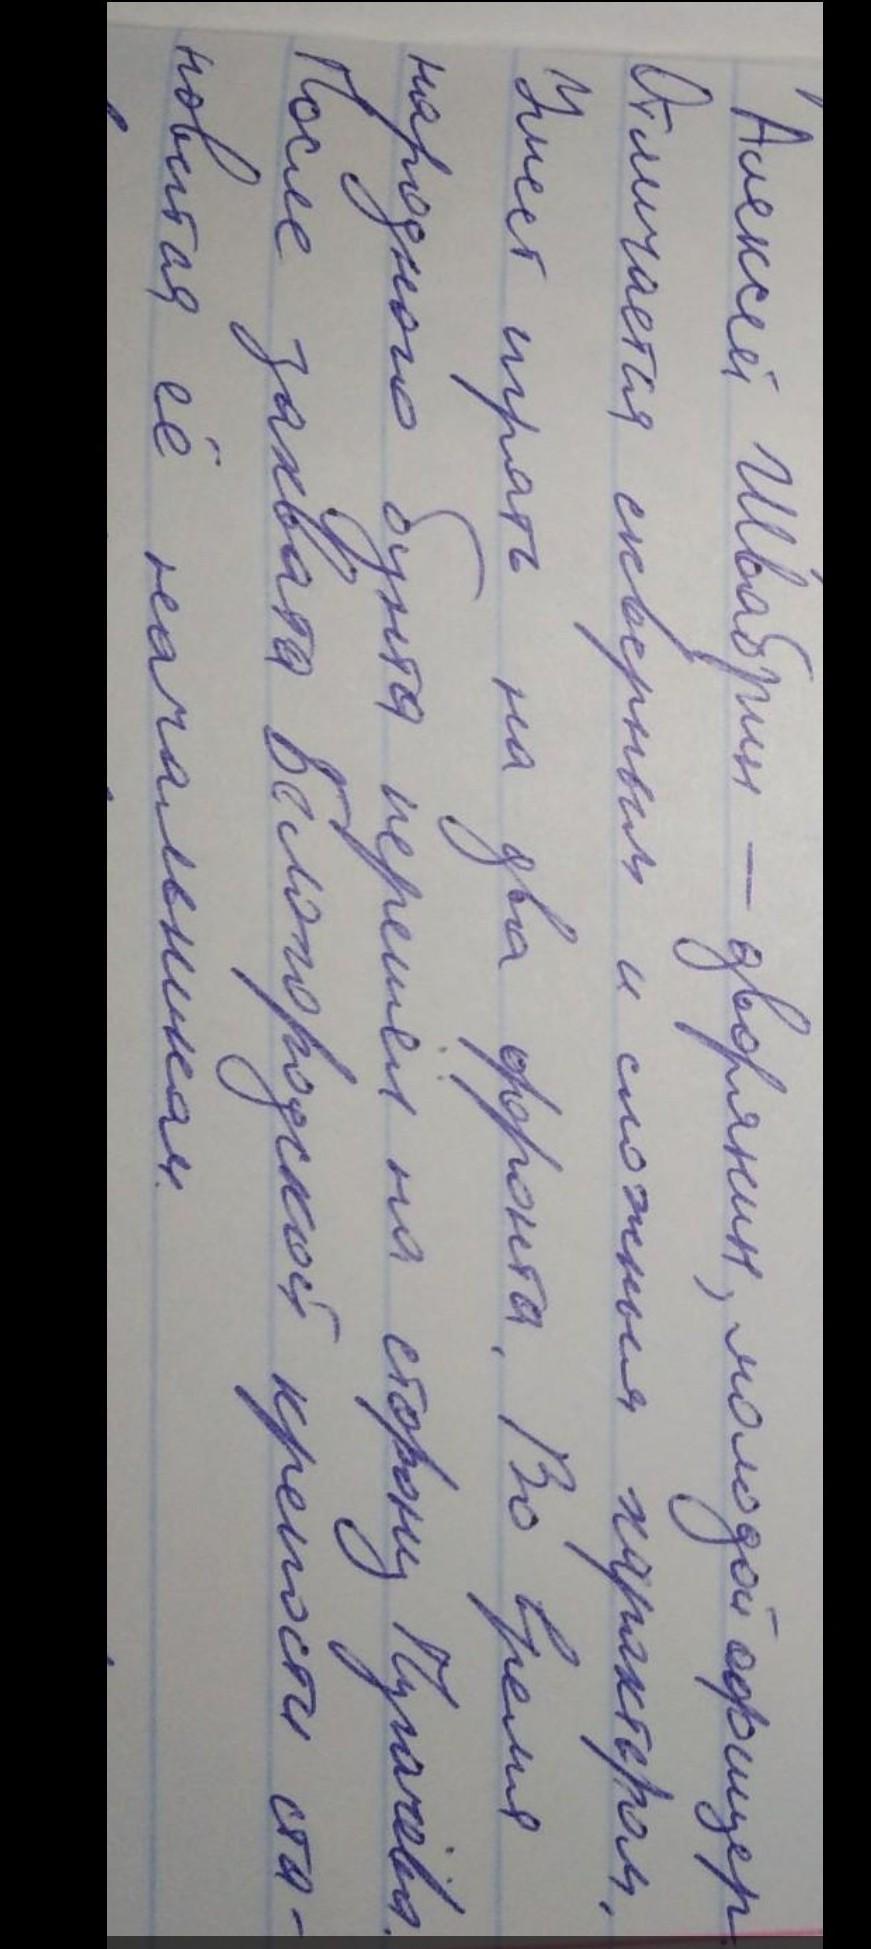 Алексей Швабрин — дворянин, молодой офицер
Отличается скверным и сложным характером.
Умеет играть на два фронта. Во время
народного бунта перешел на сторону Пугачёва.
После захвата Белогородской крепости ста-
новится её начальником.